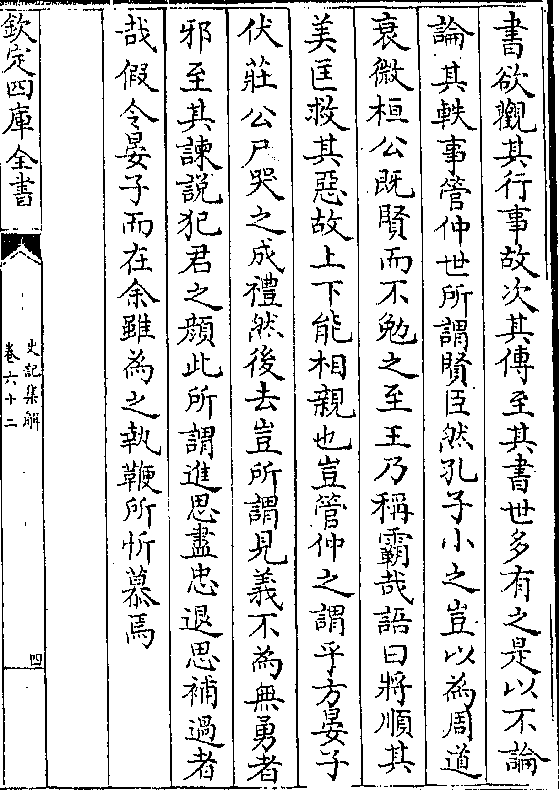 書欲觀其行事故次其傳至其書世多有之是以不論
論其軼事管仲世所謂賢臣然孔子小之豈以為周道
衰微桓公既賢而不勉之至王乃稱霸哉語曰將順其
美匡救其惡故上下能相親也豈管仲之謂乎方晏子
伏莊公尸哭之成禮然後去豈所謂見義不為無勇者
邪至其諫說犯君之顔此所謂進思盡忠退思補過者
哉假令晏子而在余雖為之執鞭所忻慕焉
欽定四庫全書
史記集解
卷六十二
四